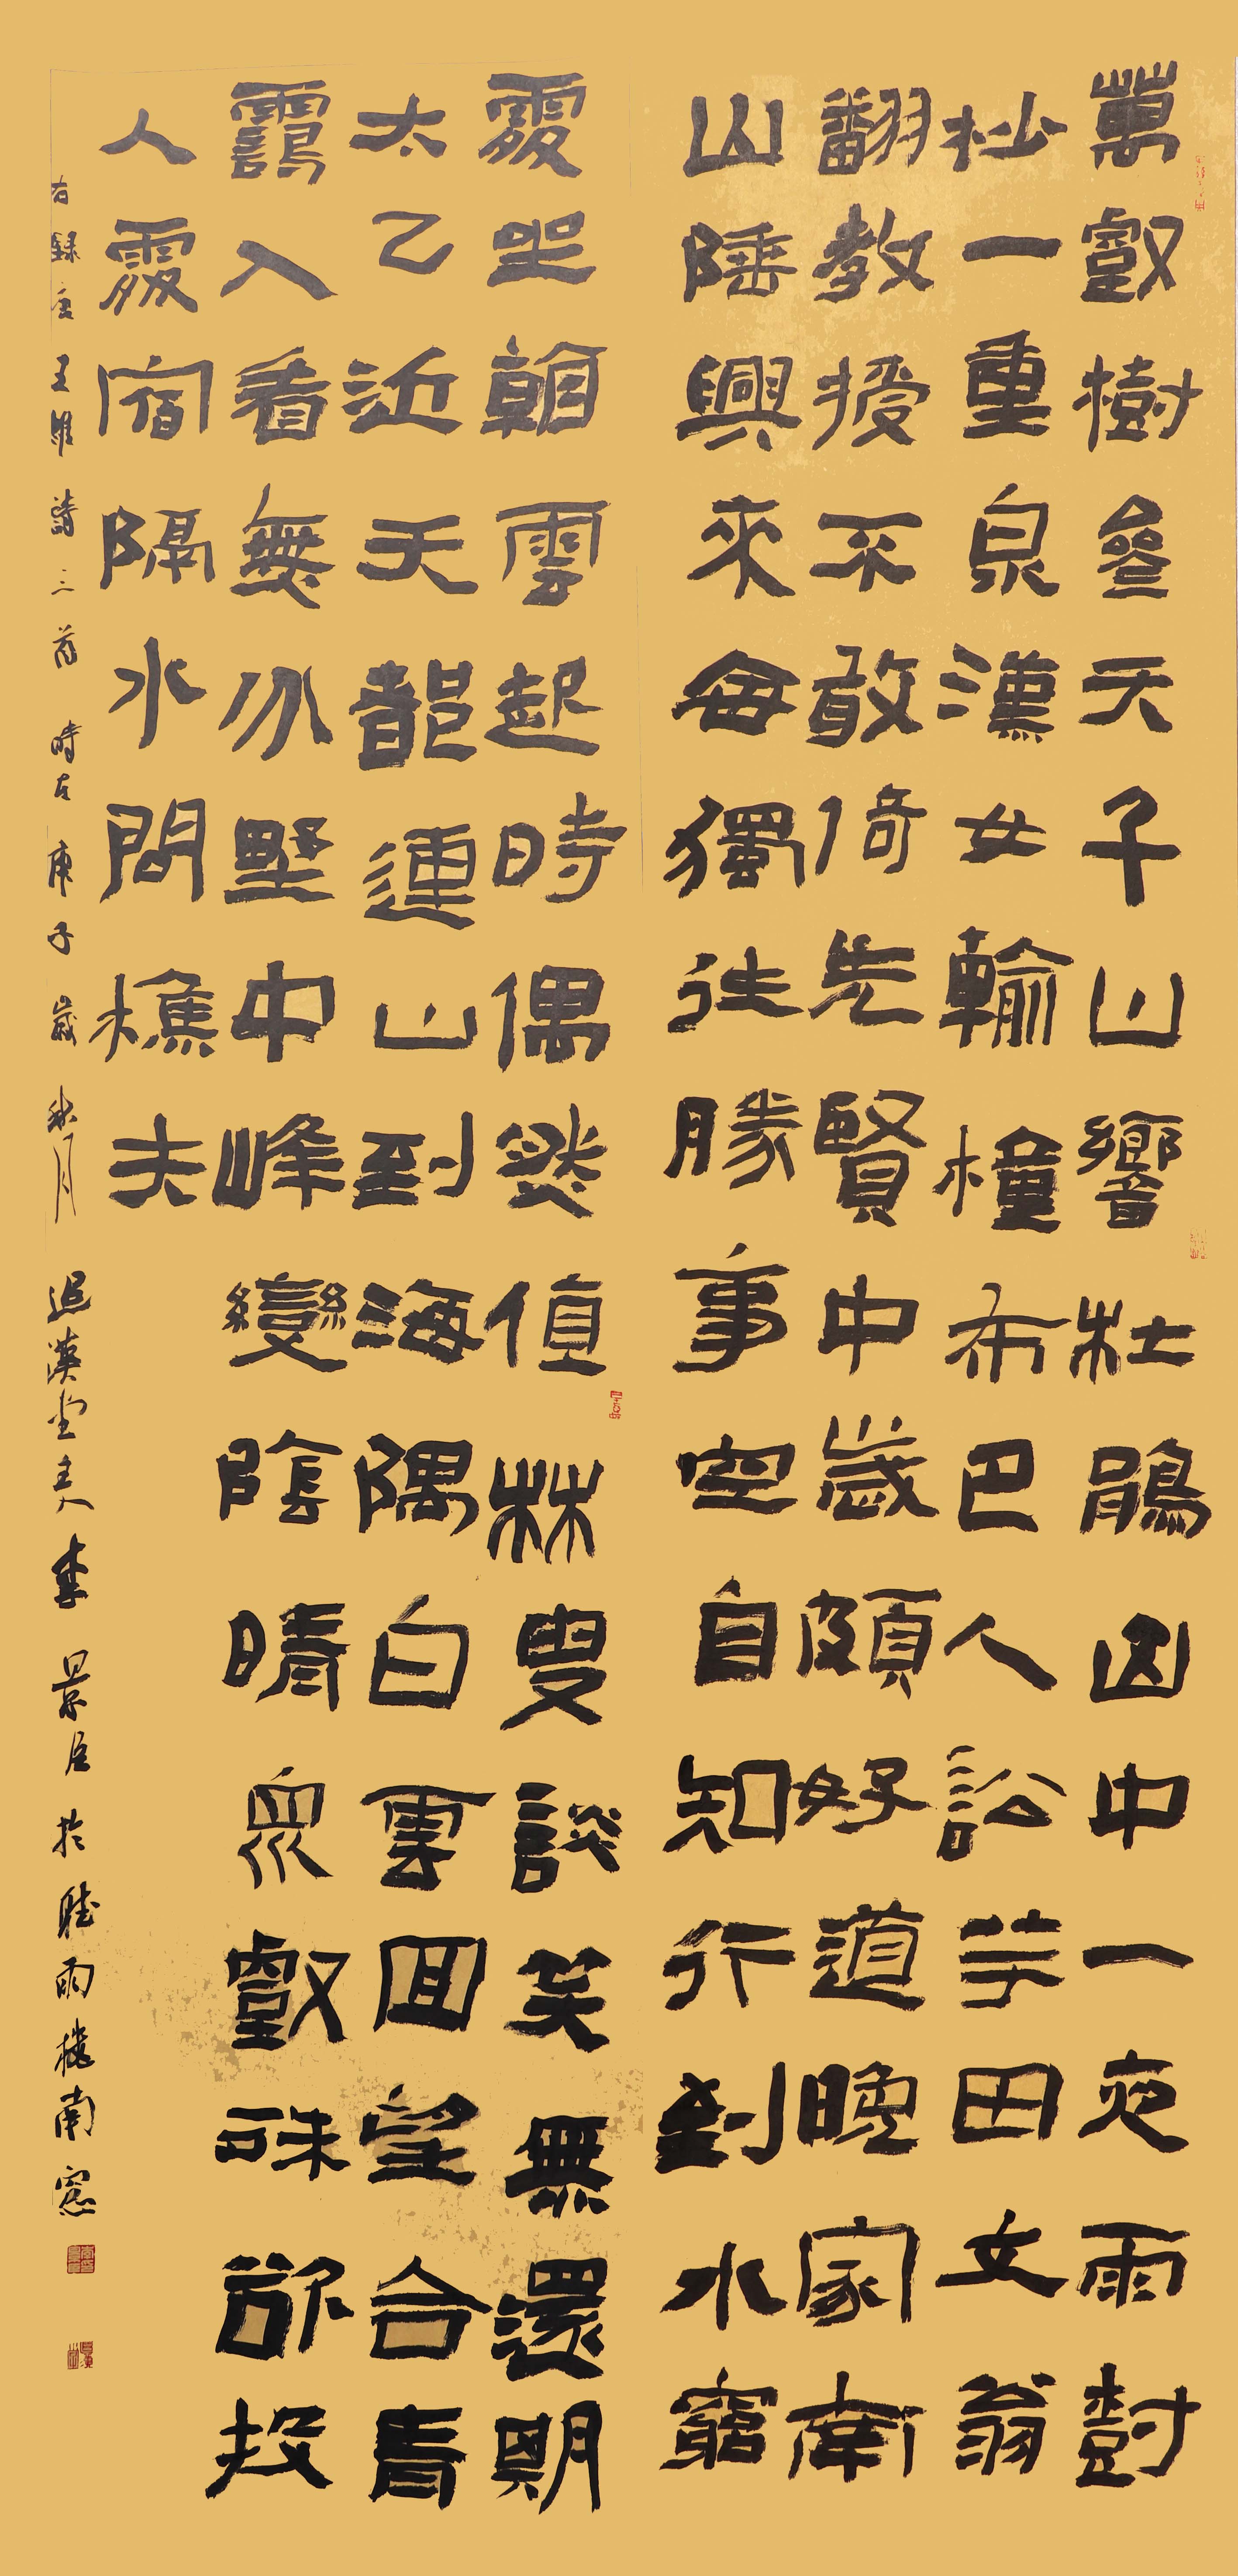 萬壑樹參天千山響杜鵑山中一夜雨樹
杪一重泉漢女輸橦布巴人訟芋田文翁
翻教授不敢倚先賢中歲頗好道晚家南
山陲興來每獨往勝事空自知行到水窮
處坐看雲起時偶然值林叟談笑無還期
太乙近天都連山到海隅白雲回望合青
靄入看無分野中峰變陰晴眾壑殊欲投
人處宿隔水問樵夫
右錄唐王維詩三首時在庚子歲秋月追漢堂主人李景臣於聽雨樓南窗